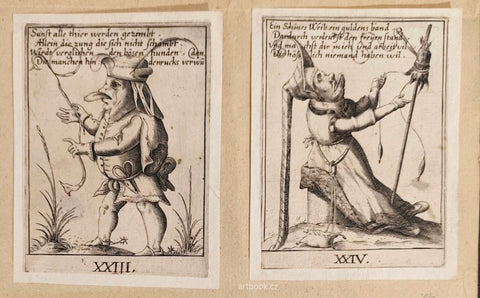 Sunst alle thier werden gezembt.
Allein die zung die sich nicht schambt.
Würdt verglichen den bösen hunden.
Die manchen hin denrucks
XXIII.
Ein Schönes Weib ein guldens band
Dardurch verleurst den freyen stand
Und mach dir mieh und arbeit vil
ich niemand haben wil.
XXIV.
artbook.cz